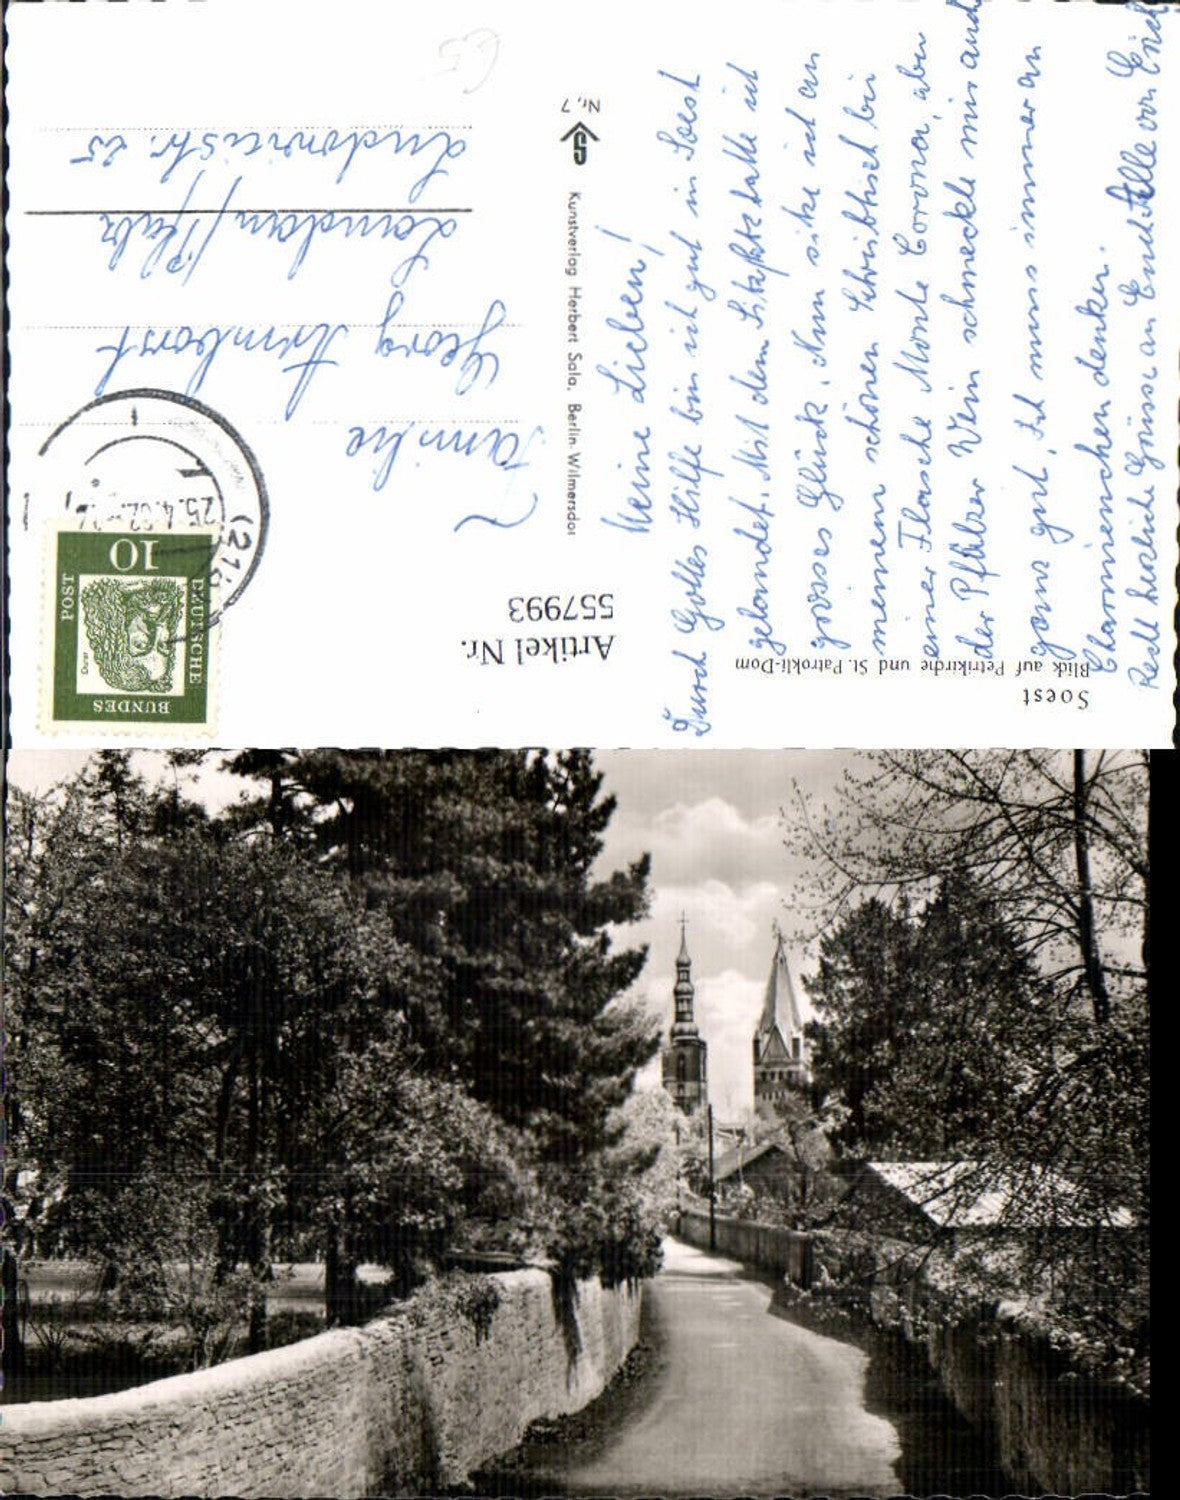 Soest
Blick auf Petrikirche und St. Patrokli-Dom
Artikel Nr.
557993
Meine Lieben!
Durch Gottes Hilfe bin ich gut in Soest
gelandet. Mit dem Sitzplatz hatte ich
grosses Glück. Nun sitze ich an
meinem schönen Schreibtisch bei
einer Flasche Monte Corona, aber
der Pfälzer Wein schmeckte mir auch
ganz gut. Ich muss immer an
Charmienchen denken.
Recht herzliche Grüsse an Euch Alle von Erich
Kunstverlag Herbert Sala, Berlin-Wilmersdor
Nr. 7
DEUTSCHE
BUNDES
POST
10
Dürer
(21b)
25.4.62
Familie
Georg Armborst
Landau/Pfalz
Ludowicistr. 25